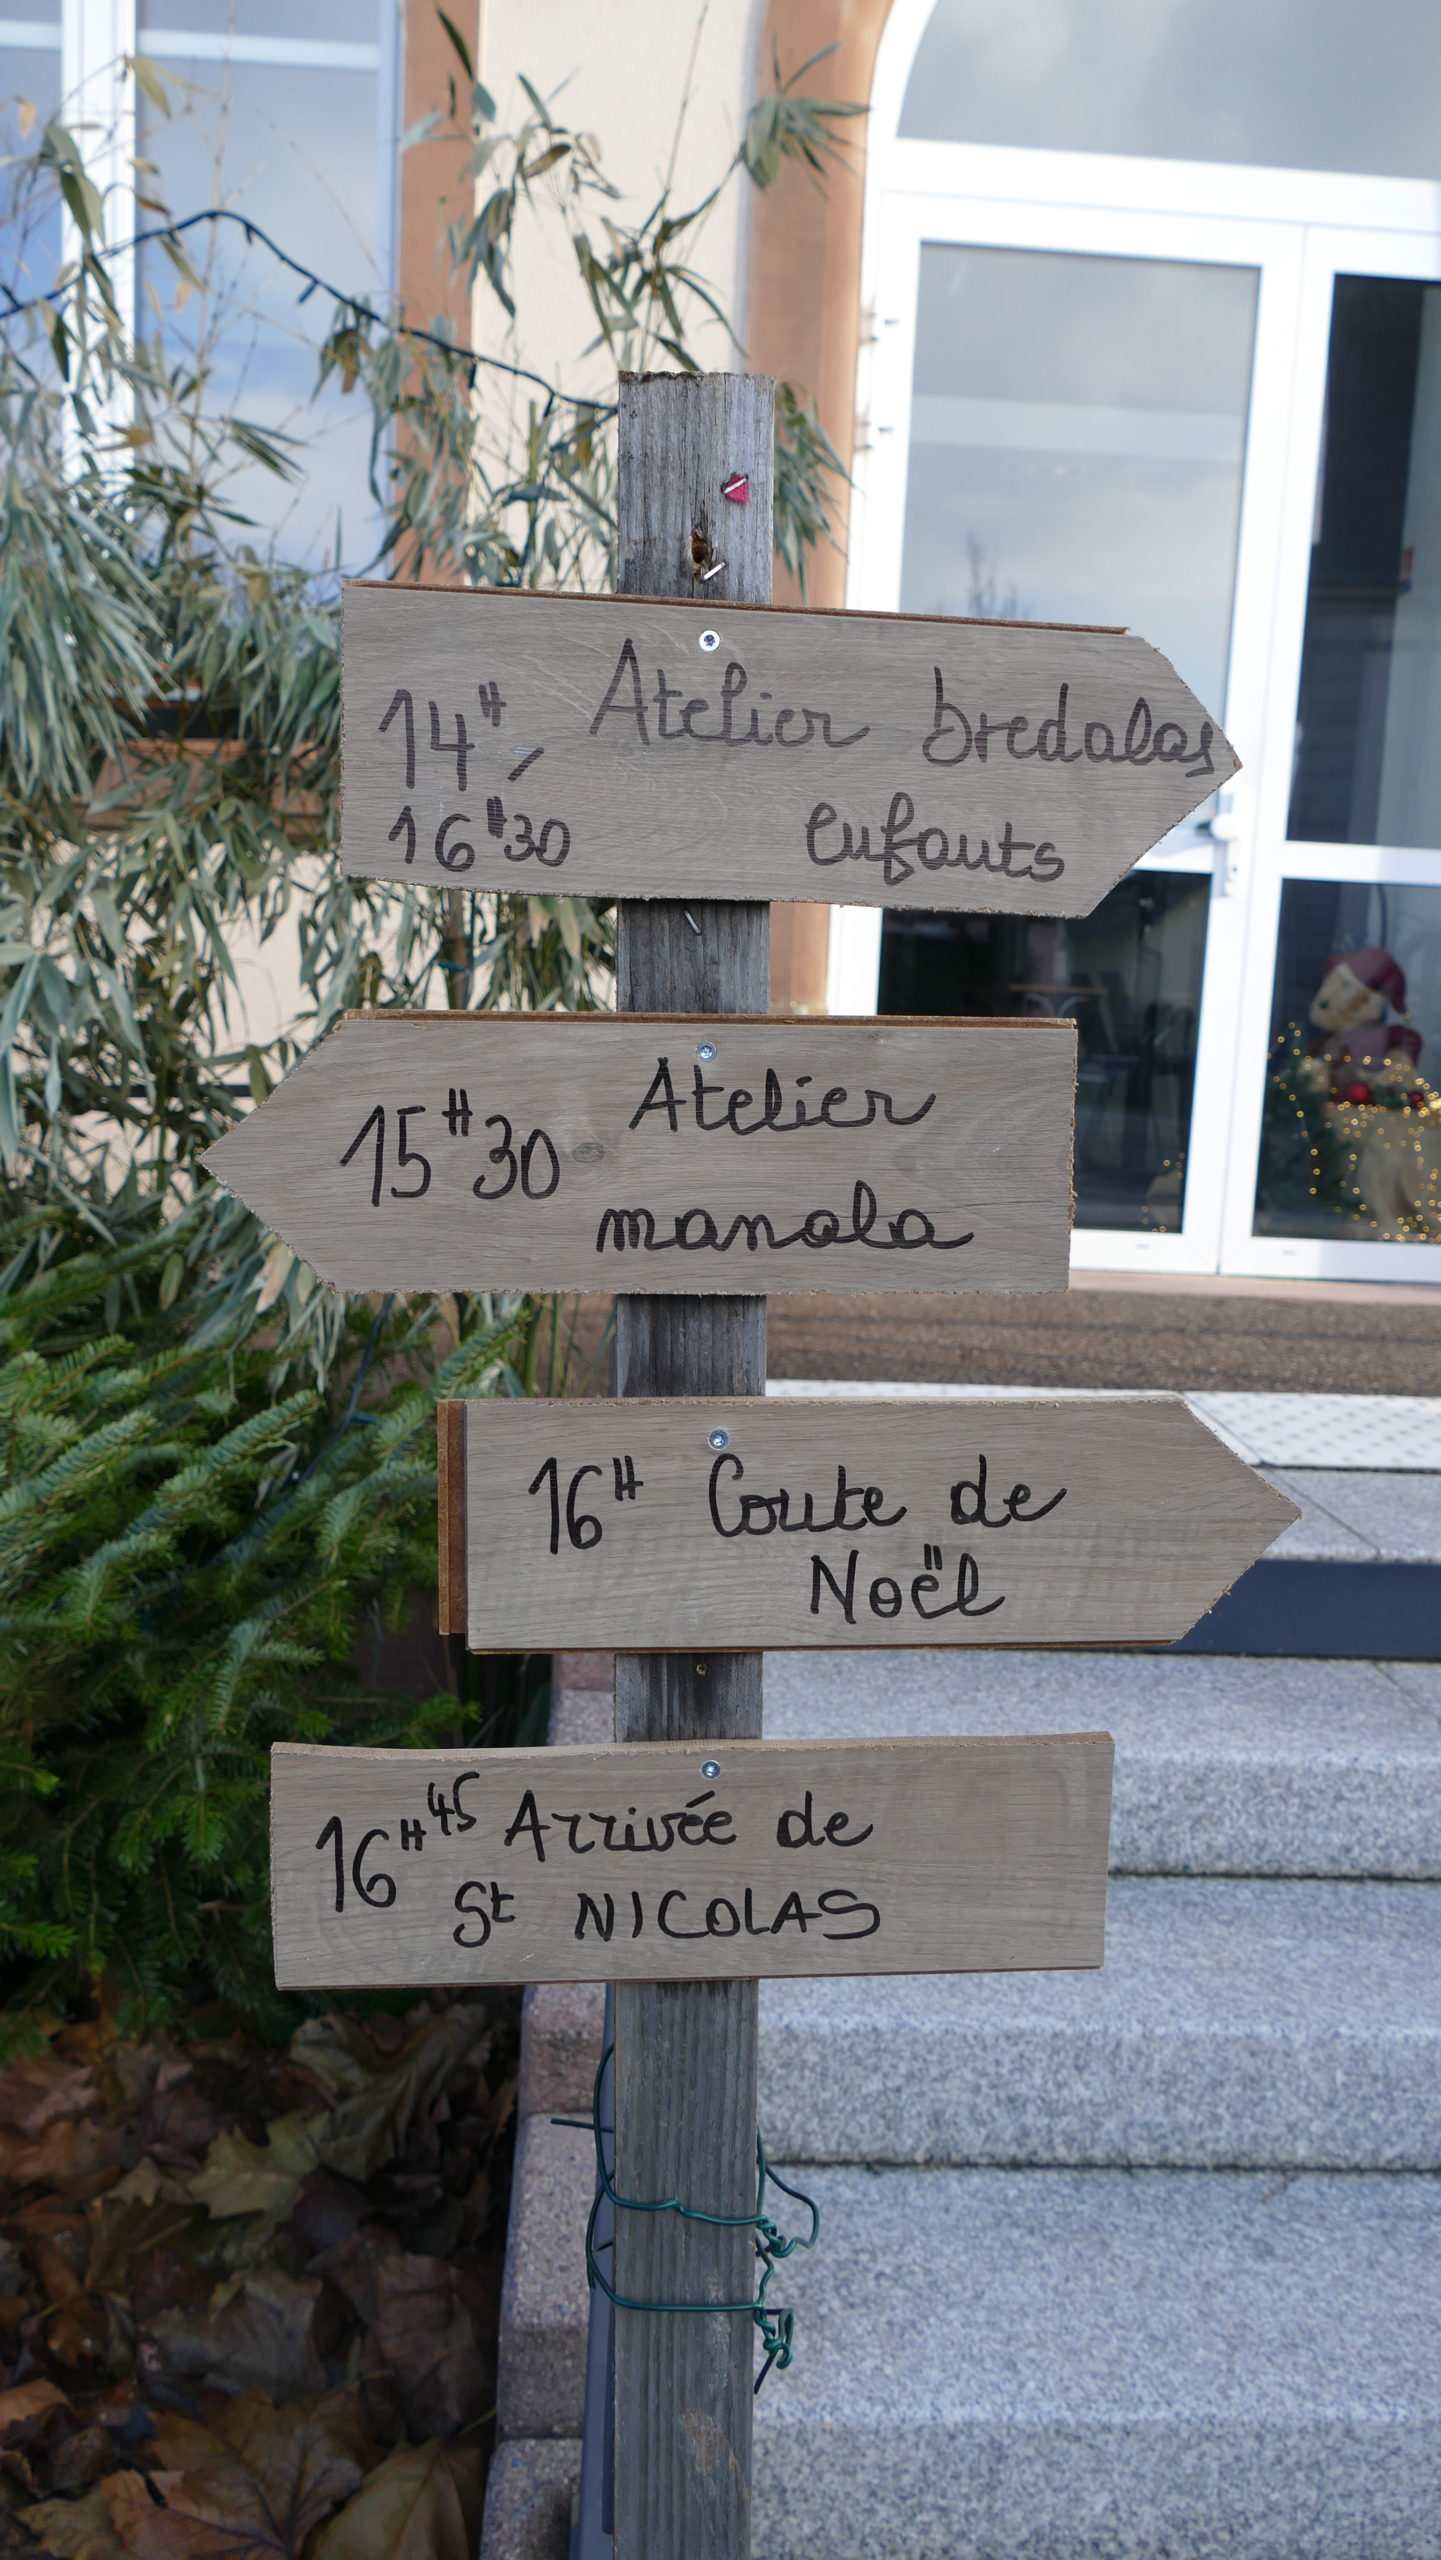 14H- Atelier bredalas
16H30 enfants
15H30 Atelier
manala
16H Conte de
Noël
16H45 Arrivée de
St NICOLAS